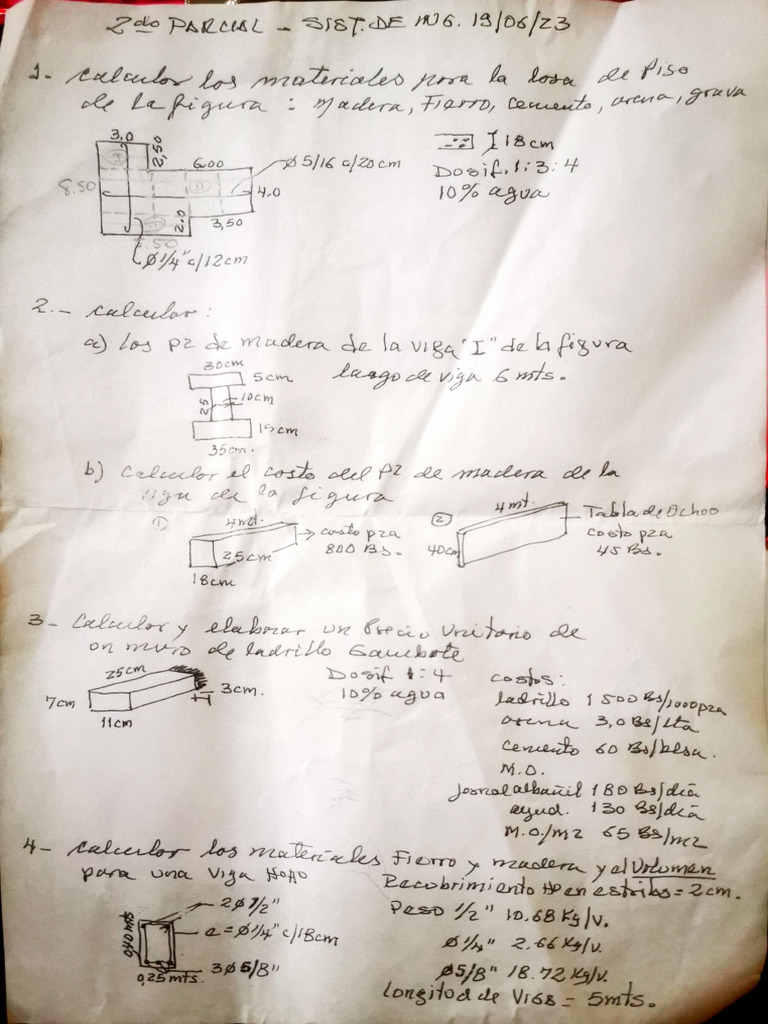 2do PARCIAL - SIST. DE ING. 19/06/23
1- Calcular los materiales para la losa de Piso
de la figura: Madera, Fierro, cemento, arena, grava
3.0
2,50
6.00
Ø 5/16 c/20cm
8.50
4.0
2.0
3,50
5.50
Ø 1/4" c/12cm
18cm
Dosif. 1:3:4
10% agua
2.- Calcular:
a) los p2 de madera de la viga "I" de la figura
largo de viga 6 mts.
30cm
5cm
10cm
25
15cm
35cm.
b) Calcular el costo del P2 de madera de la
viga de la figura
①
4mt.
25cm
18cm
costo pza
800 Bs.
②
4 mt.
40cm
Tabla de Ochoo
costo pza
45 Bs.
3- Calcular y elaborar un Precio Unitario de
un muro de ladrillo Gambote
25cm
7cm
11cm
3cm.
Dosif 1:4
10% agua
costos:
ladrillo 1500 Bs/1000pza
arena 3,0 Bs/lta
cemento 60 Bs/bolsa.
M.O.
Jornal albañil 180 Bs/día
ayud. 130 Bs/día
M.O./m2 65 Bs/m2
4- Calcular los materiales Fierro y madera y el Volumen
para una viga HºAº
Recubrimiento Hº en estribos = 2cm.
2Ø 1/2"
e=Ø1/4" c/18cm
3Ø 5/8"
0,40 mts
0,25 mts.
Peso 1/2" 10.68 Kg/v.
Ø 1/4" 2.66 Kg/v.
Ø5/8" 18.72 Kg/v.
Longitud de Viga = 5mts.